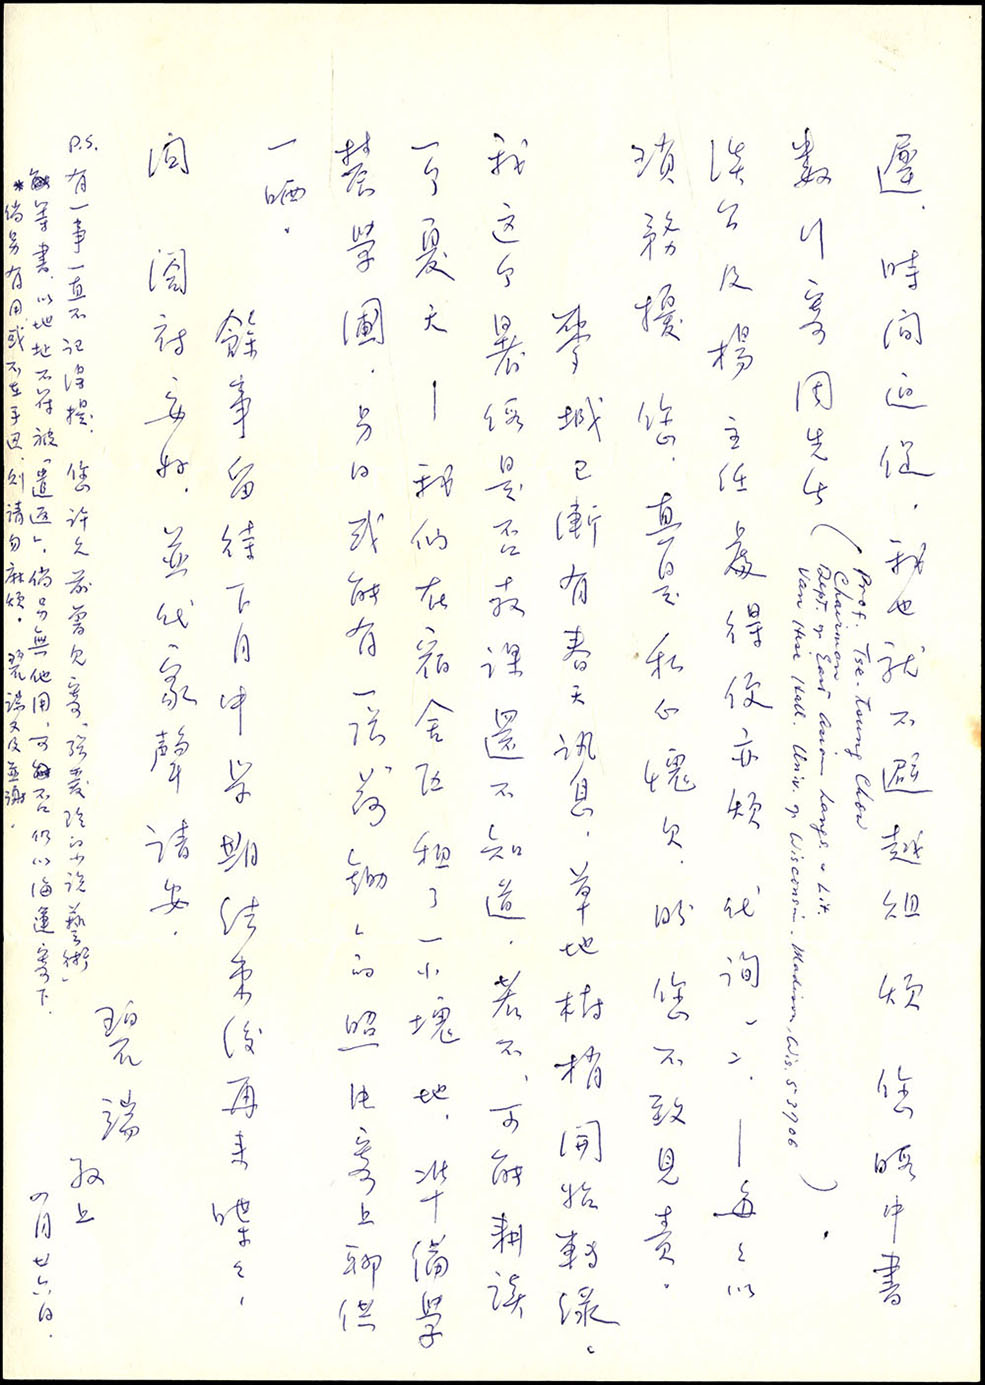 遲．時间迫促．我也就不避越俎 煩 您暇中書
數行寄周先生（
Prof. Tse-tsung Chow
Chairman
Dept. of East Asian Langs. & Lit.
Van Hise Hall. Univ. of Wisconsin. Madison, Wis. 53706
）．
淡公及楊主任處得便亦煩 代詢一二．—每々以
瑣務擾 您．真是私心愧欠．盼 您不致見責．
學城已漸有春天訊息．草地樹梢開始轉綠。
我这个暑假是否教課還不知道．若不．可能耕讀
一个夏天—我们在宿舍区租了一小塊地．準備學
農學圃．另日或能有一張荷鋤的照片寄上聊供
一哂．
餘事留待下月中学期结束後再来喋々．
问 闔府安好．並代家聲請安．
碧端
敬上
四月廿六日．
P.S. 有一事一直不记得提．您许久前曾见寄「張愛玲的小说藝術」
等書．以地址不符被「遣返」．倘另無他用．可否仍以海運寄下．
*倘另有用或不在手邊．则請勿麻烦． 碧端又及並謝．